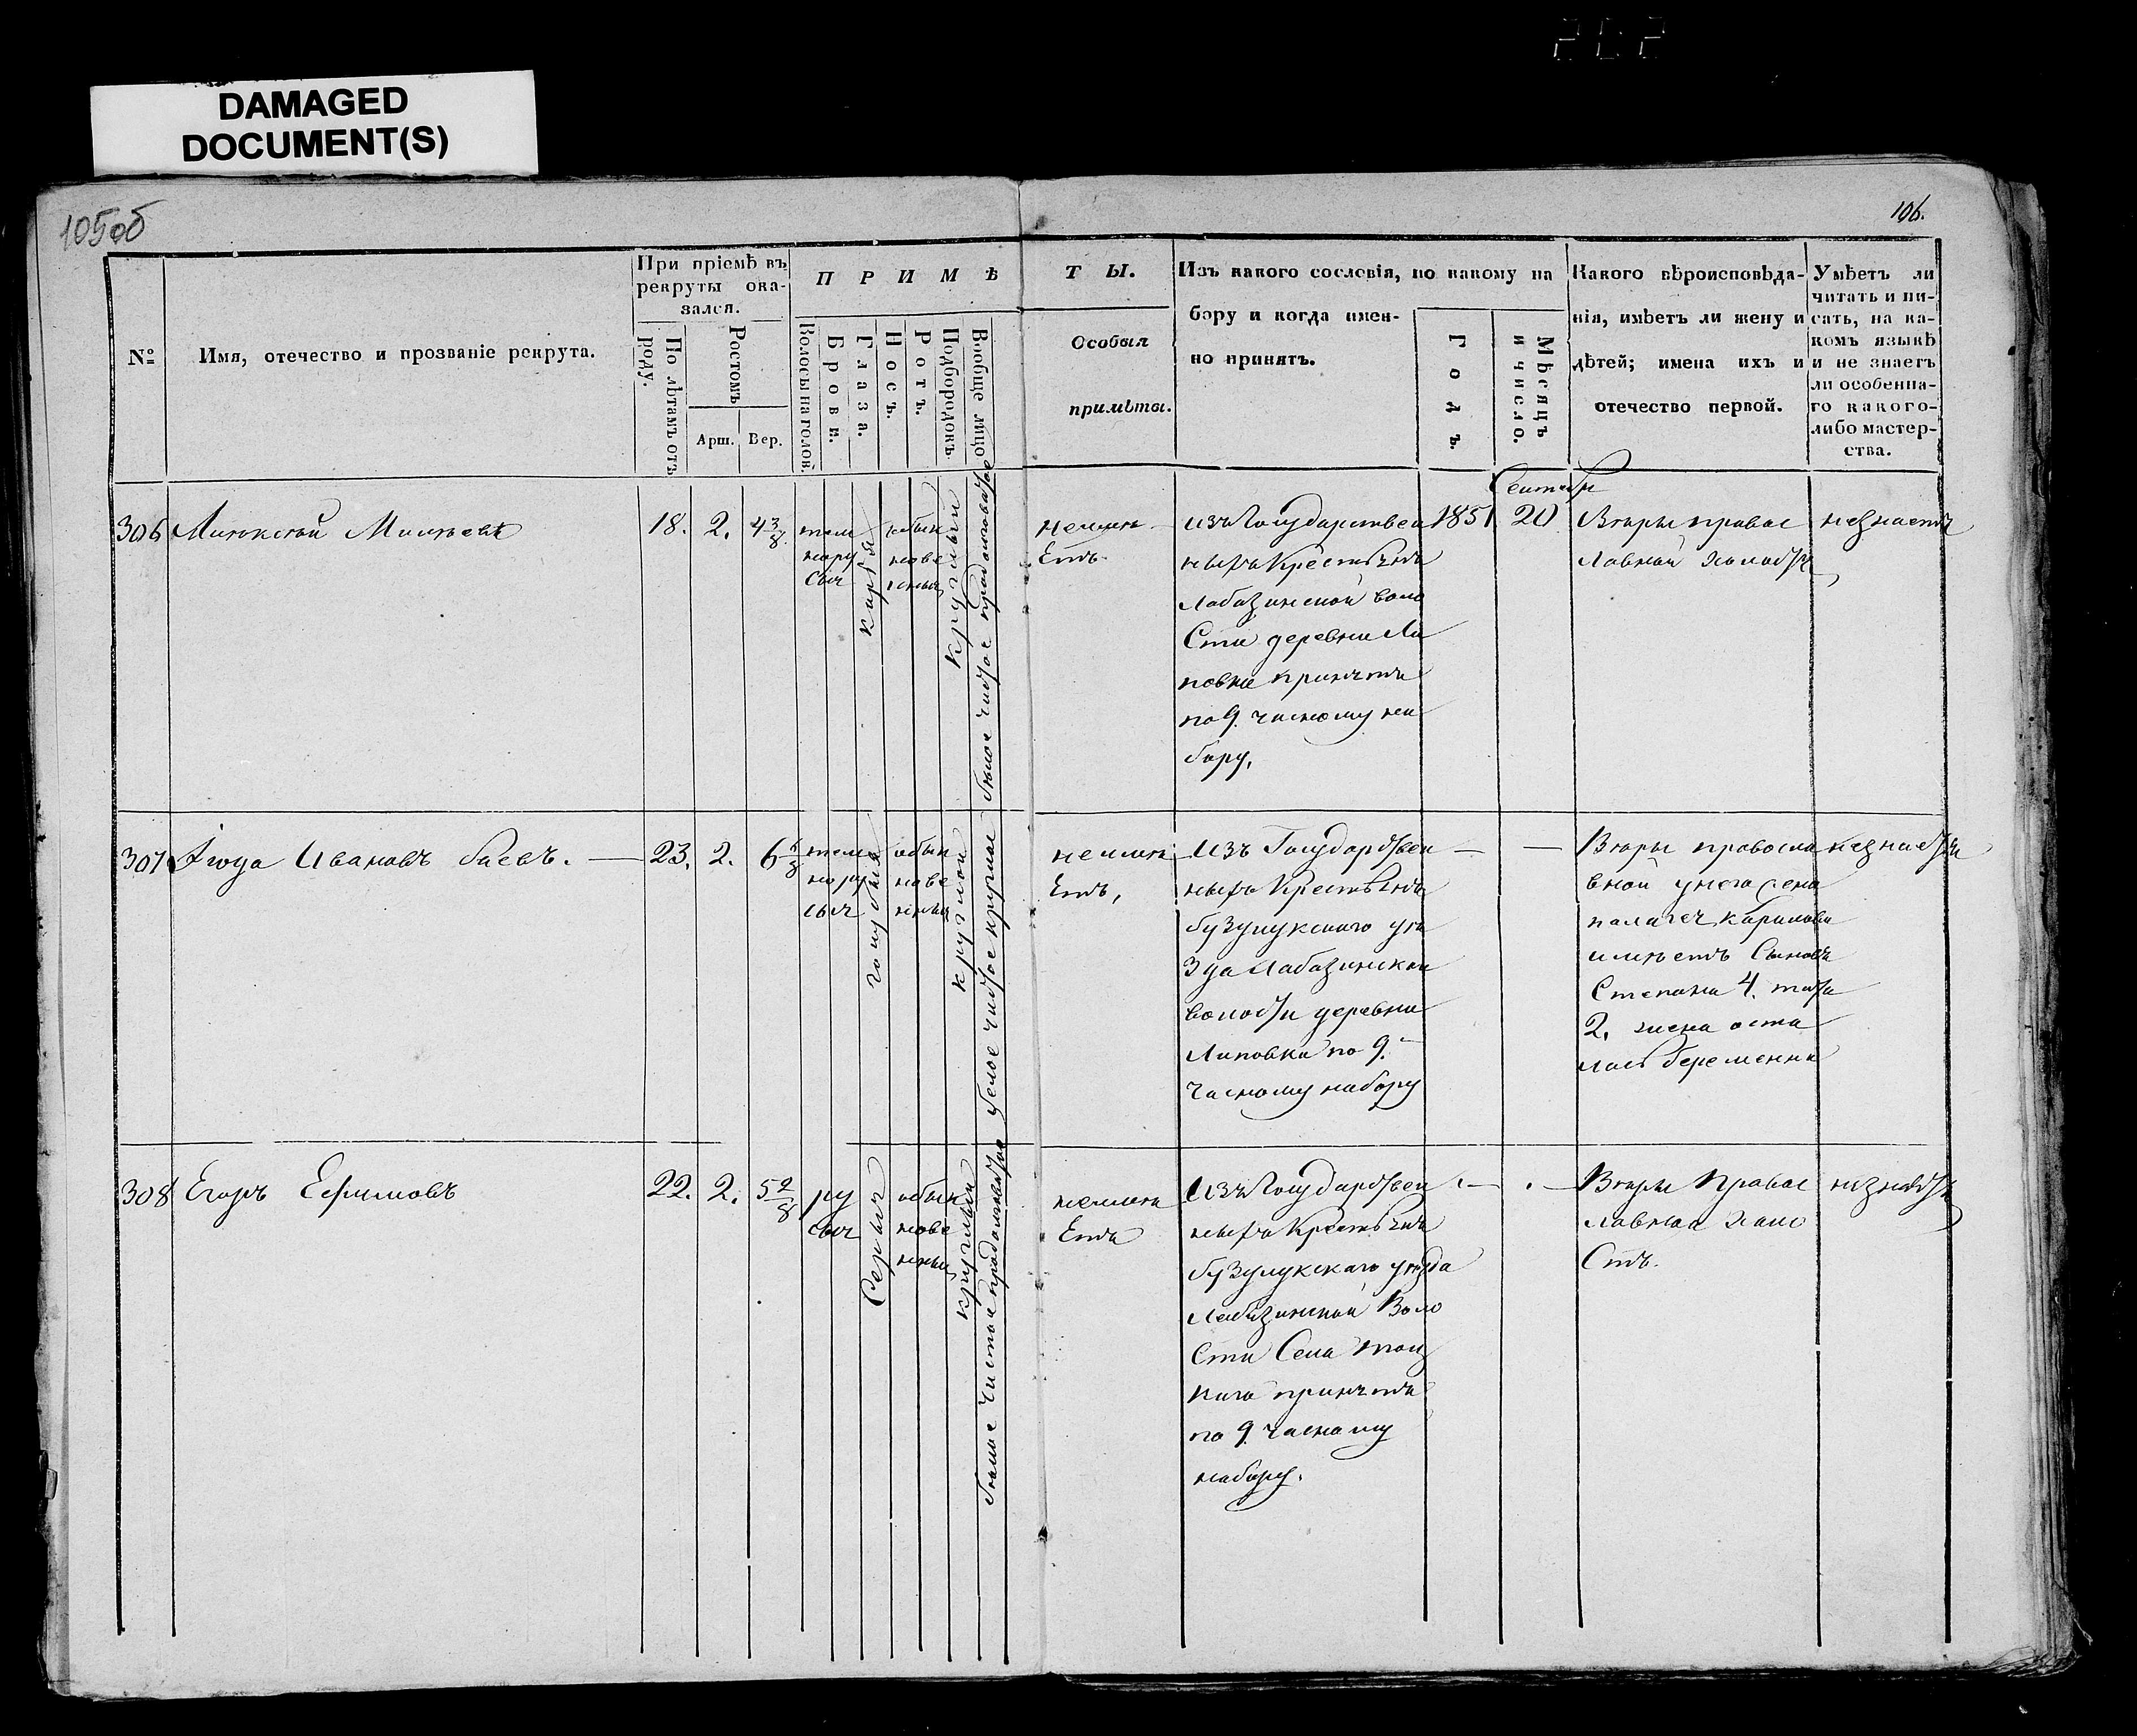 DAMAGED
DOCUMENT(S)
105об
106.
№
Имя, отечество и прозваніе рекрута.
При пріемѣ въ
рекруты ока-
зался.
По лѣтамъ отъ
роду.
Ростомъ
Арш.
Вер.
П Р И М Ѣ
Волосы на голов.
Брови.
Глаза.
Носъ.
Ротъ.
Подбородокъ.
Вообще лицо
Т Ы.
Особыя
примѣты.
Изъ какого сословія, по какому на
бору и когда имен-
но принятъ.
Годъ.
Мѣсяцъ
и число.
Какого вѣроисповѣда-
нія, имѣетъ ли жену и
дѣтей; имена ихъ и
отечество первой.
Умѣетъ ли
читать и пи-
сать, на ка-
комъ языкѣ
и не знаетъ
ли особенна-
го какого-
либо мастер-
ства.
306
18.
2.
4 3/8
тем
нору
сыя
карія
обык
нове
нныя
круглый
белое чистое продолговатое
неиме
етъ
изъ Государствен
ныхъ Крестьянъ
Лабазинской воло
Сти деревни Ли
повки принятъ
по 9. часному на
бору.
1851
Сентябр
20
Веры правос
лавной холостъ
незнаетъ
307
Ивановъ баевъ.
23.
2.
6
темн
нору
сыя
голубыя
обык
нове
нныя
круглой
белое чистое круглое
неиме
етъ,
Изъ Государствен
ныхъ Крестьянъ
бузулукскаго уе
зда Лабазинской
волости деревни
Липовки по 9.
часному набору
Веры правосла
вной у него жена
имеетъ Сыновъ
Степана 4.
2. жена оста
лась беременна
незнаетъ
308
Егоръ Ефимовъ
22.
2.
5 2/8
ру
сыя
Серыя
обык
нове
нныя
круглый
белое чистое продолговатое
неиме
етъ
Изъ Государствен
ныхъ Крестьянъ
бузулукскаго уезда
Лабазинской Воло
Сти Села Тоц
каго принятъ
по 9. часному
набору.
Веры Правос
лавной холо
Стъ.
незнаетъ